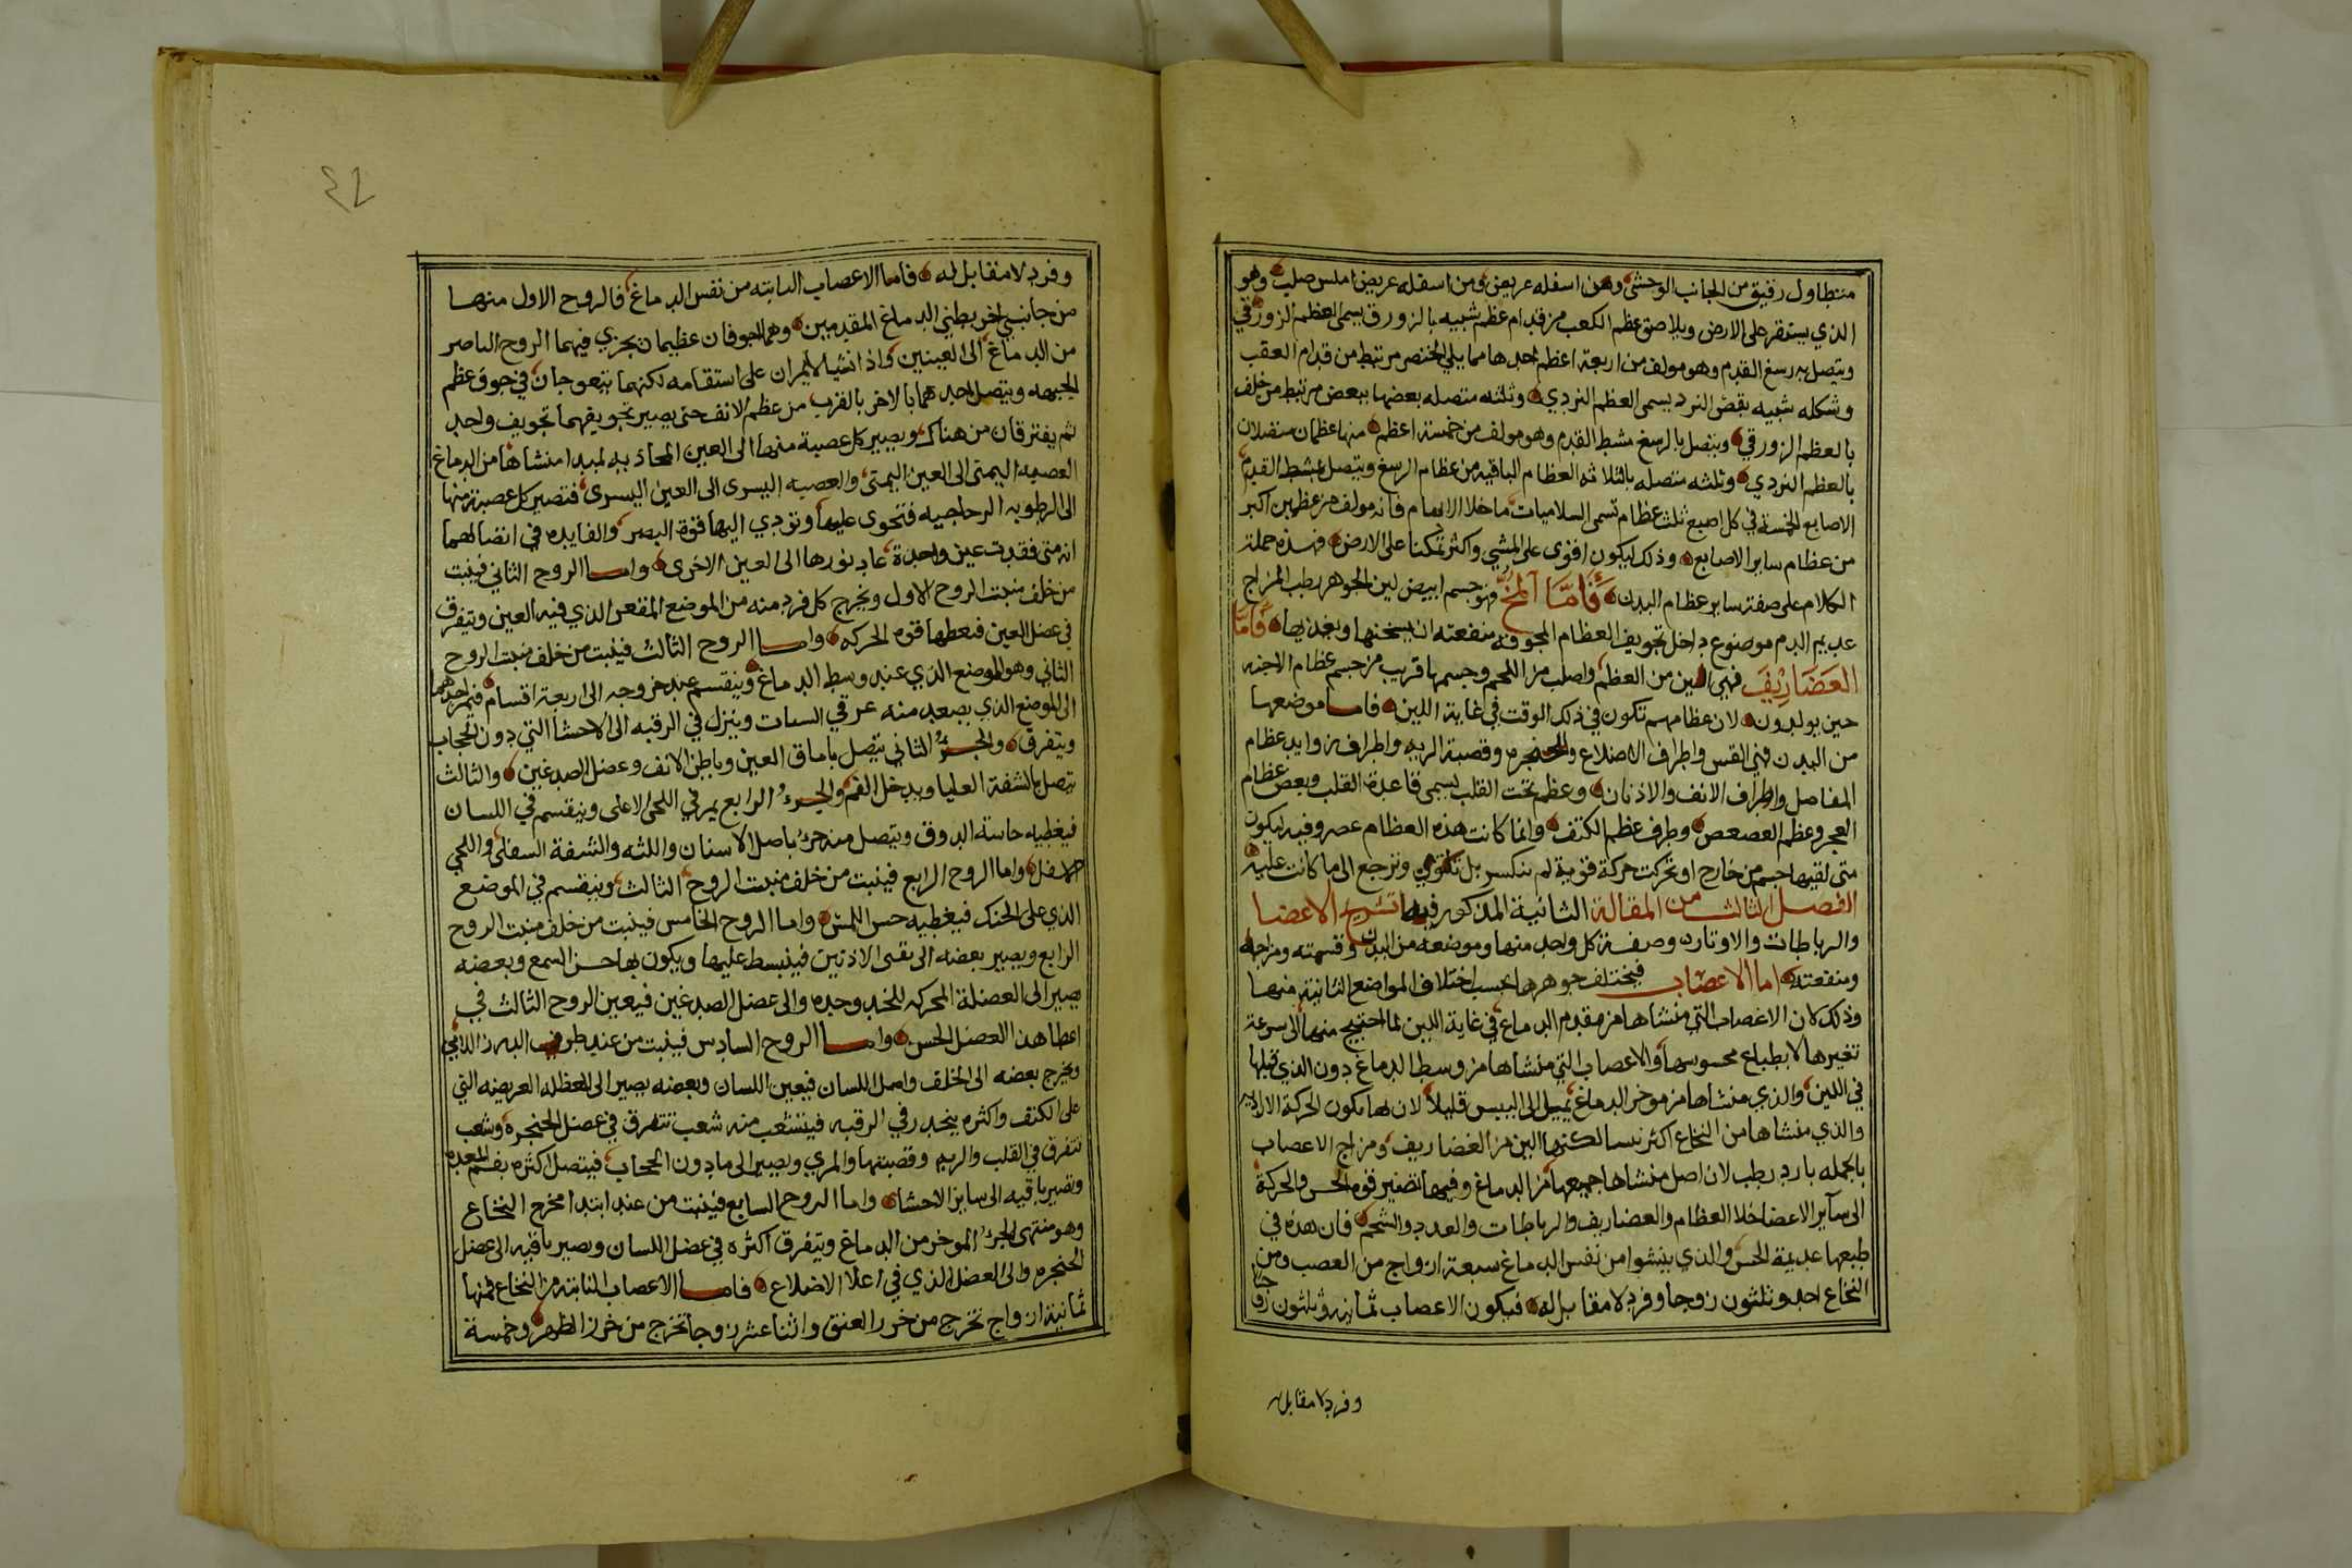 متطاول رقيق من الجانب الوحشي ومن اسفله عريض ومن اسفله عريض املس صلب وهو
الذي يستقر على الارض ويلاصق عظم الكعب من قدام عظم شبيه بالزورق يسمى العظم الزورقي
ويتصل به رسغ القدم وهو مولف من اربعة اعظم احدها مما يلي الخنصر مرتبط من قدام العقب
وشكله شبيه بفص النرد يسمى العظم النردي وثلثه متصله بعضها ببعض مرتبط من خلف
بالعظم الزورقي ويتصل بالرسغ مشط القدم وهو مولف من خمسة اعظم منها عظمان متصلان
بالعظم النردي وثلثه متصله بالثلاثه العظام الباقيه من عظام الرسغ ويتصل بمشط القدم
الاصابع الخمسة في كل اصبع ثلث عظام تسمى السلاميات ما خلا الابهام فانه مولف من عظمين اكبر
من عظام ساير الاصابع وذلك ليكون اقوى على المشي واكثر تمكنا على الارض فهذه جملة
الكلام على صفة ساير عظام البدن فَأمَّا المخّ فهو جسم ابيض لين الجوهر رطب المزاج
عديم الدم موضوع داخل تجويف العظام المجوفه منفعته ان يسخنها ويغذيها فَأمَّا
الغضَارِيْفَ فهي الين من العظم واصلب من اللحم وجسمها قريب من جسم عظام الاجنه
حين يولدون لان عظامهم تكون في ذلك الوقت في غاية اللين فاما موضعها
من البدن فهي القس واطراف الاضلاع والحنجره وقصبة الريه واطراف زوايد عظام
المفاصل واطراف الانف والاذنان وعظم تحت القلب يسمى قاعدة القلب وبعض عظام
العجز وعظم العصعص وطرف عظم الكتف وانما كانت هذه العظام غضروفيه ليكون
متى لقيها جسم من خارج او تحركت حركة قوية لم تنكسر بل تلتوي وترجع الى ما كانت عليه
الفصل الثالث من المقالة الثانية المذكور فيها تشريح الاعضا
والرباطات والاوتار وصفة كل واحد منها وموضعه من البدن وقسمته ومزاجه
ومنفعته اما الاعصاب فيختلف جوهرها بحسب اختلاف المواضع النابتة منها
وذلك لان الاعصاب التي منشاها من مقدم الدماغ في غاية اللين لما احتيج منها الى سرعة
تغيرها الا بطباع محسوسها والاعصاب التي منشاها من وسط الدماغ دون الذي قبلها
في اللين والذي منشاها من موخر الدماغ يميل الى اليبس قليلا لان لها تكون الحركة الاراديه
والذي منشاها من النخاع اكثر يبسا لكنها الين من الغضاريف ومزاج الاعصاب
بالجمله بارد رطب لان اصل منشاها جميعها من الدماغ وفيها تصير قوة الحس والحركة
الى سآير الاعضا خلا العظام والغضاريف والرباطات والغدد والشحم فان هذه في
طبعها عديمة الحس والذي ينشوا من نفس الدماغ سبعة ازواج من العصب ومن
النخاع احد وثلثون زوجا وفرد لا مقابل له فيكون الاعصاب ثمانيه وثلثون زوجا
وفرد لا مقابل له
وفرد لا مقابل له فاما الاعصاب النابته من نفس الدماغ فالزوج الاول منها
من جانبي اخر بطني الدماغ المقدمين وهما اجوفان عظيمان يجري فيهما الروح الباصر
من الدماغ الى العينين واذا نشيا لا يمران على استقامه لكنهما يتعوجان في جوف عظم
الجبهه ويتصل احدهما بالاخر بالقرب من عظم الانف حتى يصير تجويفهما تجويف واحد
ثم يفترقان من هناك ويصير كل عصبة منهما الى العين المحاذيه لمبدا منشاها من الدماغ
العصبه اليمنى الى العين اليمنى والعصبه اليسرى الى العين اليسرى فتصير كل عصبة منها
الى الرطوبه الزجاجيه فتحوى عليها وتودي اليها قوة البصر والفايده في اتصالهما
انه متى فقدت عين واحدة عاد نورها الى العين الاخرى واما الزوج الثاني فينبت
من خلف منبت الزوج الاول ويخرج كل فرد منه من الموضع المقعر الذي فيه العين ويتفرق
في عضل العين فيعطيها قوه الحركه واما الزوج الثالث فينبت من خلف منبت الزوج
الثاني وهو الموضع الذي عند وسط الدماغ وينقسم عند خروجه الى اربعة اقسام فيمر احدهما
الى الموضع الذي يصعد منه عرقي السبات وينزل في الرقبه الى الاحشا التي دون الحجاب
ويتفرق والجزؤ الثاني يتصل باماق العين وباطن الانف وعضل الصدغين والثالث
يتصل بالشفة العليا ويدخل الفم والجزؤ الرابع يمر في اللحى الاعلى وينقسم في اللسان
فيغطيه حاسة الذوق ويتصل منه جزؤ باصل الاسنان واللثه والشفة السفلى واللحى
الاسفل واما الزوج الرابع فينبت من خلف منبت الزوج الثالث وينقسم في الموضع
الذي على الحنك فيغطيه حس اللمس واما الزوج الخامس فينبت من خلف منبت الزوج
الرابع ويصير بعضه الى ثقبي الاذنين فينبسط عليها ويكون بها حس السمع وبعضه
يصير الى العضلة المحركه للخد وحده والى عضل الصدغين فيعين الزوج الثالث في
اعطا هذا العضل الحس واما الزوج السادس فينبت من عند طرف الدرز اللامي
ويخرج بعضه الى الخلق واصل اللسان فيعين اللسان وبعضه يصير الى العظله العريضه التي
على الكتف واكثره ينحدر في الرقبه فيتشعب منه شعب تتفرق في عضل الحنجره وشعب
تتفرق في القلب والريه وقصبتها والمري ويصير الى ما دون الحجاب فيتصل اكثره بفم المعده
وتصير باقيه الى ساير الاحشا واما الزوج السابع فينبت من عند ابتدا مخرج النخاع
وهو منتهى الجزؤ الموخر من الدماغ ويتفرق اكثره في عضل اللسان ويصير باقيه الى عضل
الحنجره والى العضل الذي في اعلا الاضلاع فاما الاعصاب النابته من النخاع فمنها
ثمانية ازواج تخرج من خرز العنق واثنا عشر زوجا تخرج من خرز الظهر وخمسة